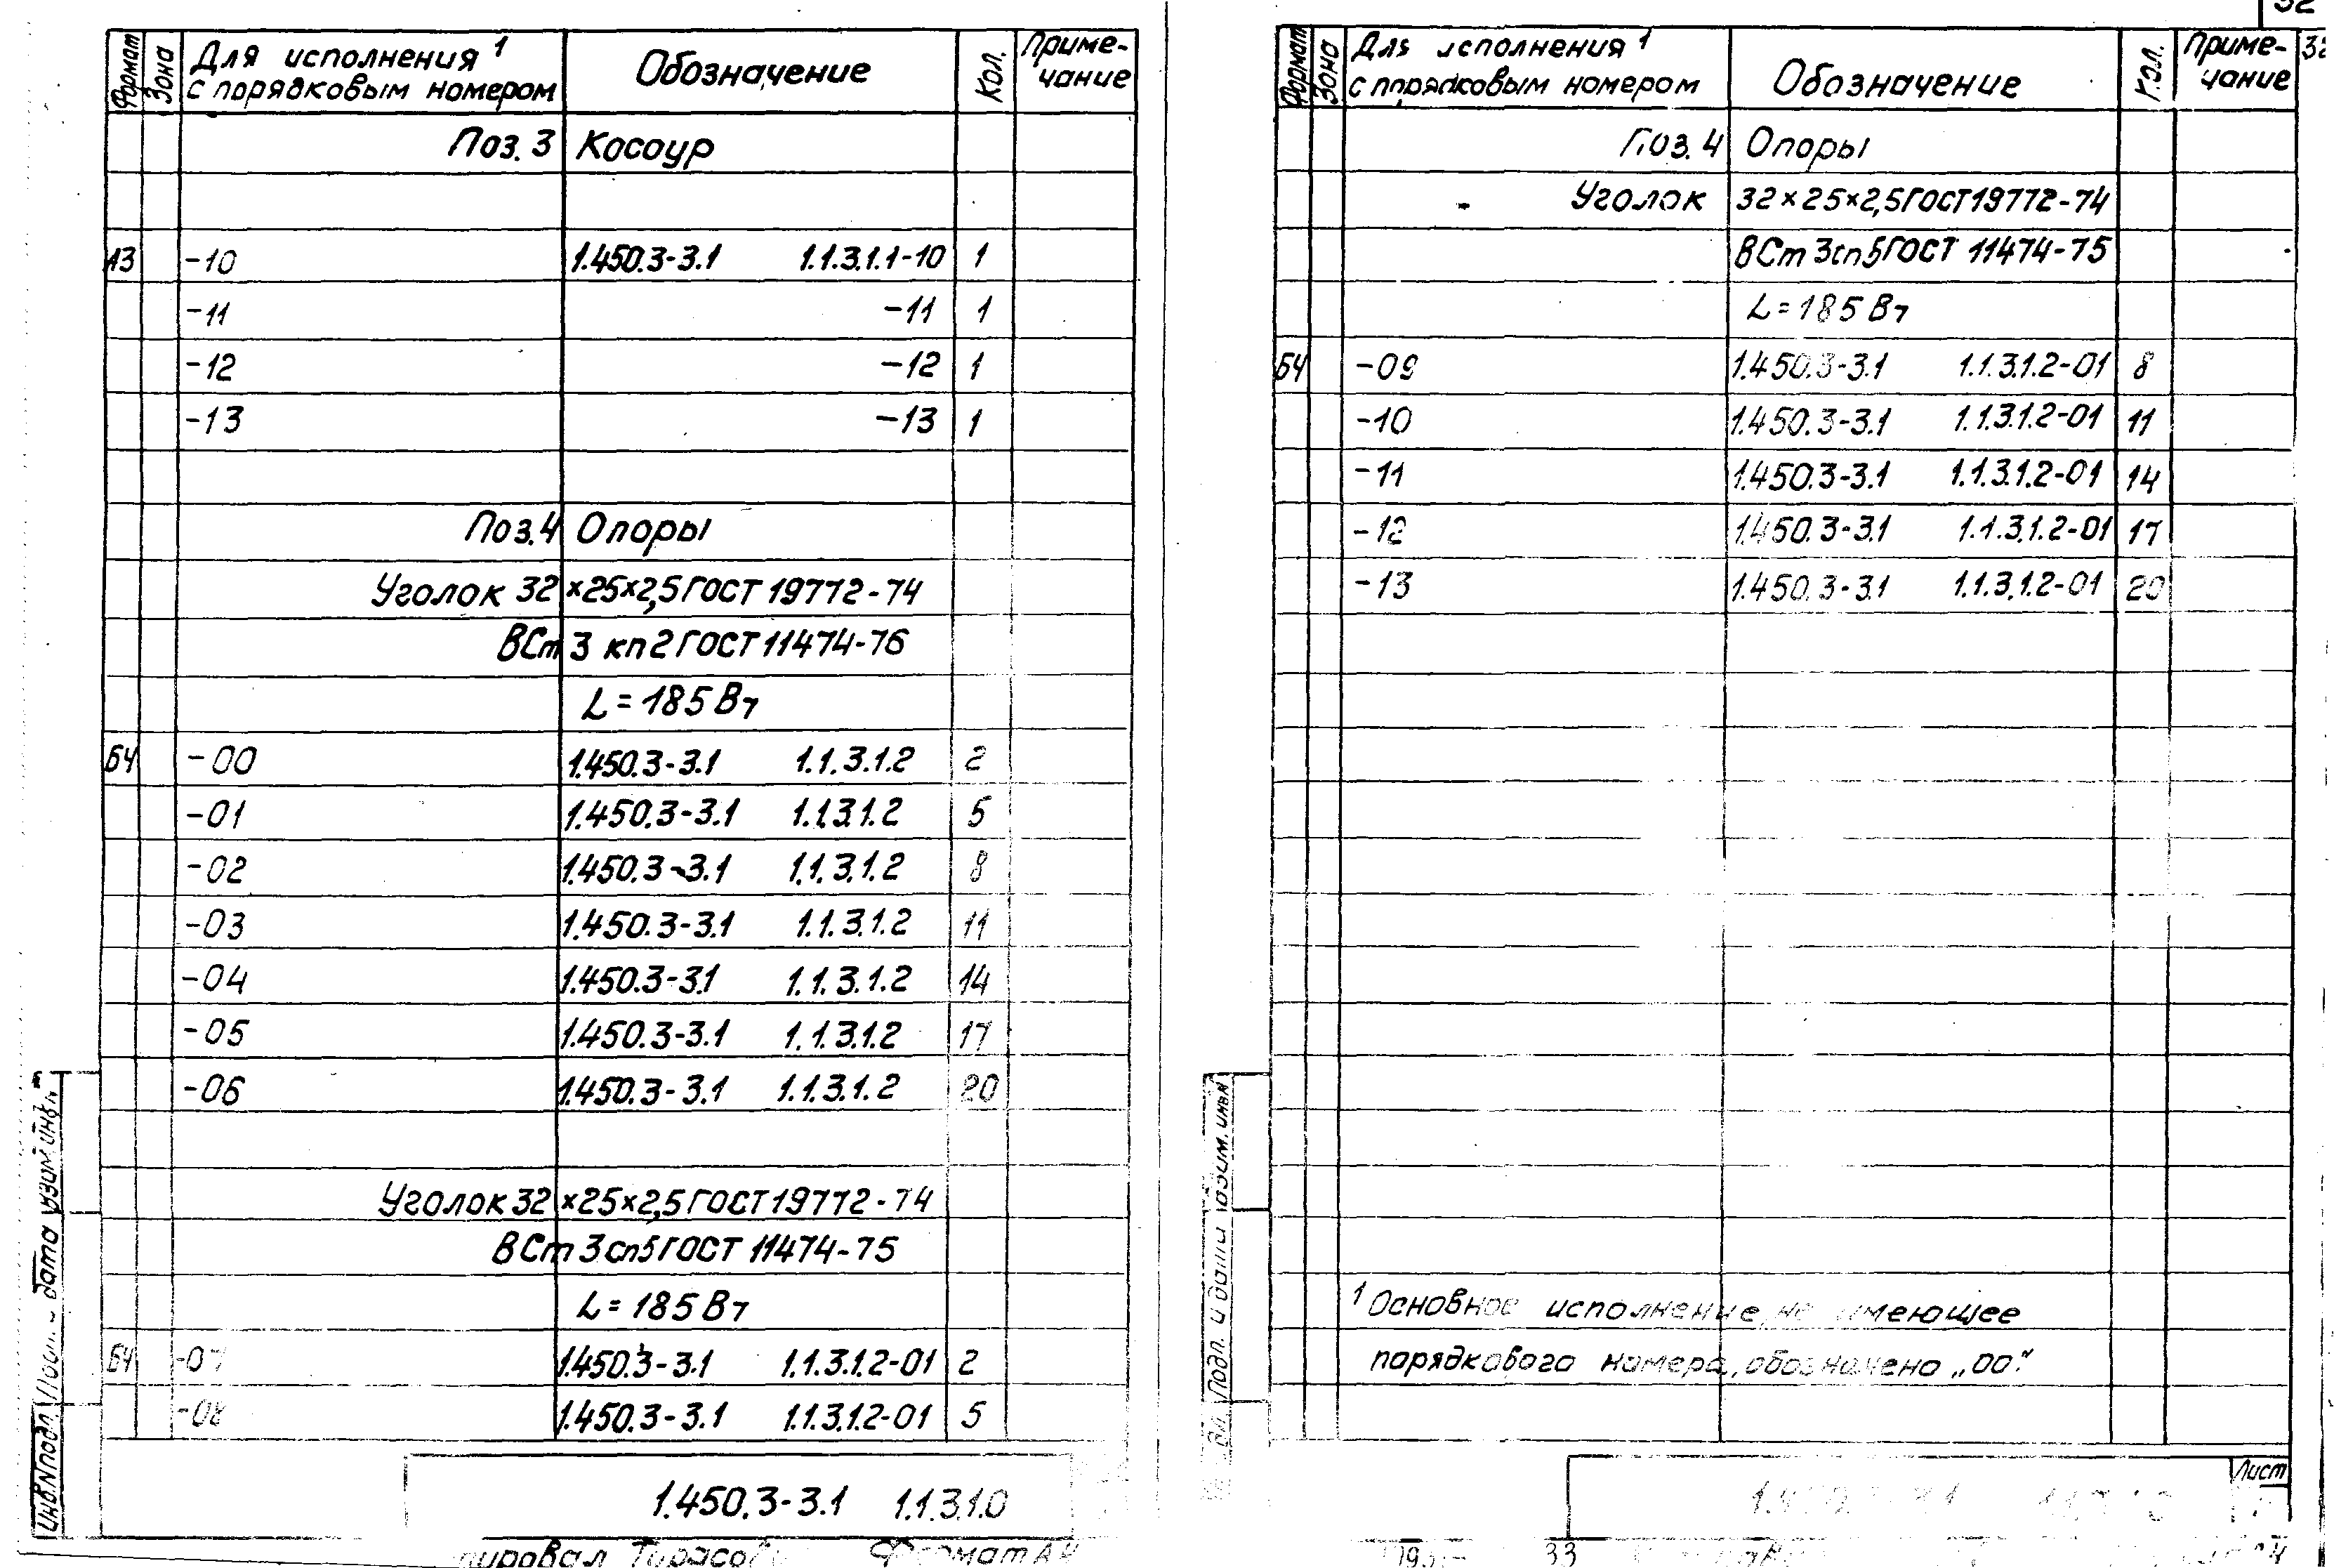 Формат Зона Для исполнения ¹ с порядковым номером Обозначение Кол. Приме-чание
Поз. 3 Косоур
А3 -10 1.450.3-3.1 1.1.3.1.1-10 1
-11 -11 1
-12 -12 1
-13 -13 1
Поз.4 Опоры
Уголок 32×25×2,5 ГОСТ 19772-74
ВСт 3 кп 2 ГОСТ 11474-76
L=185 Вт
БЧ -00 1.450.3-3.1 1.1.3.1.2 2
-01 1.450.3-3.1 1.1.3.1.2 5
-02 1.450.3-3.1 1.1.3.1.2 8
-03 1.450.3-3.1 1.1.3.1.2 11
-04 1.450.3-3.1 1.1.3.1.2 14
-05 1.450.3-3.1 1.1.3.1.2 17
-06 1.450.3-3.1 1.1.3.1.2 20
Уголок 32×25×2,5 ГОСТ 19772-74
ВСт 3сп5 ГОСТ 11474-75
L=185 Вт
БЧ -07 1.450.3-3.1 1.1.3.1.2-01 2
-08 1.450.3-3.1 1.1.3.1.2-01 5
1.450.3-3.1 1.1.3.1.0
Формат А4
Инв.Nподл. дата
32
Формат Зона Для исполнения ¹ с порядковым номером Обозначение Кол. Приме-чание
Поз. 4 Опоры
Уголок 32×25×2,5 ГОСТ 19772-74
ВСт 3сп5 ГОСТ 11474-75
L=185 Вт
БЧ -09 1.450.3-3.1 1.1.3.1.2-01 8
-10 1.450.3-3.1 1.1.3.1.2-01 11
-11 1.450.3-3.1 1.1.3.1.2-01 14
-12 1.450.3-3.1 1.1.3.1.2-01 17
-13 1.450.3-3.1 1.1.3.1.2-01 20
¹ Основное исполнение, не имеющее
порядкового номера, обозначено „00".
Подп. и дата
Лист
33